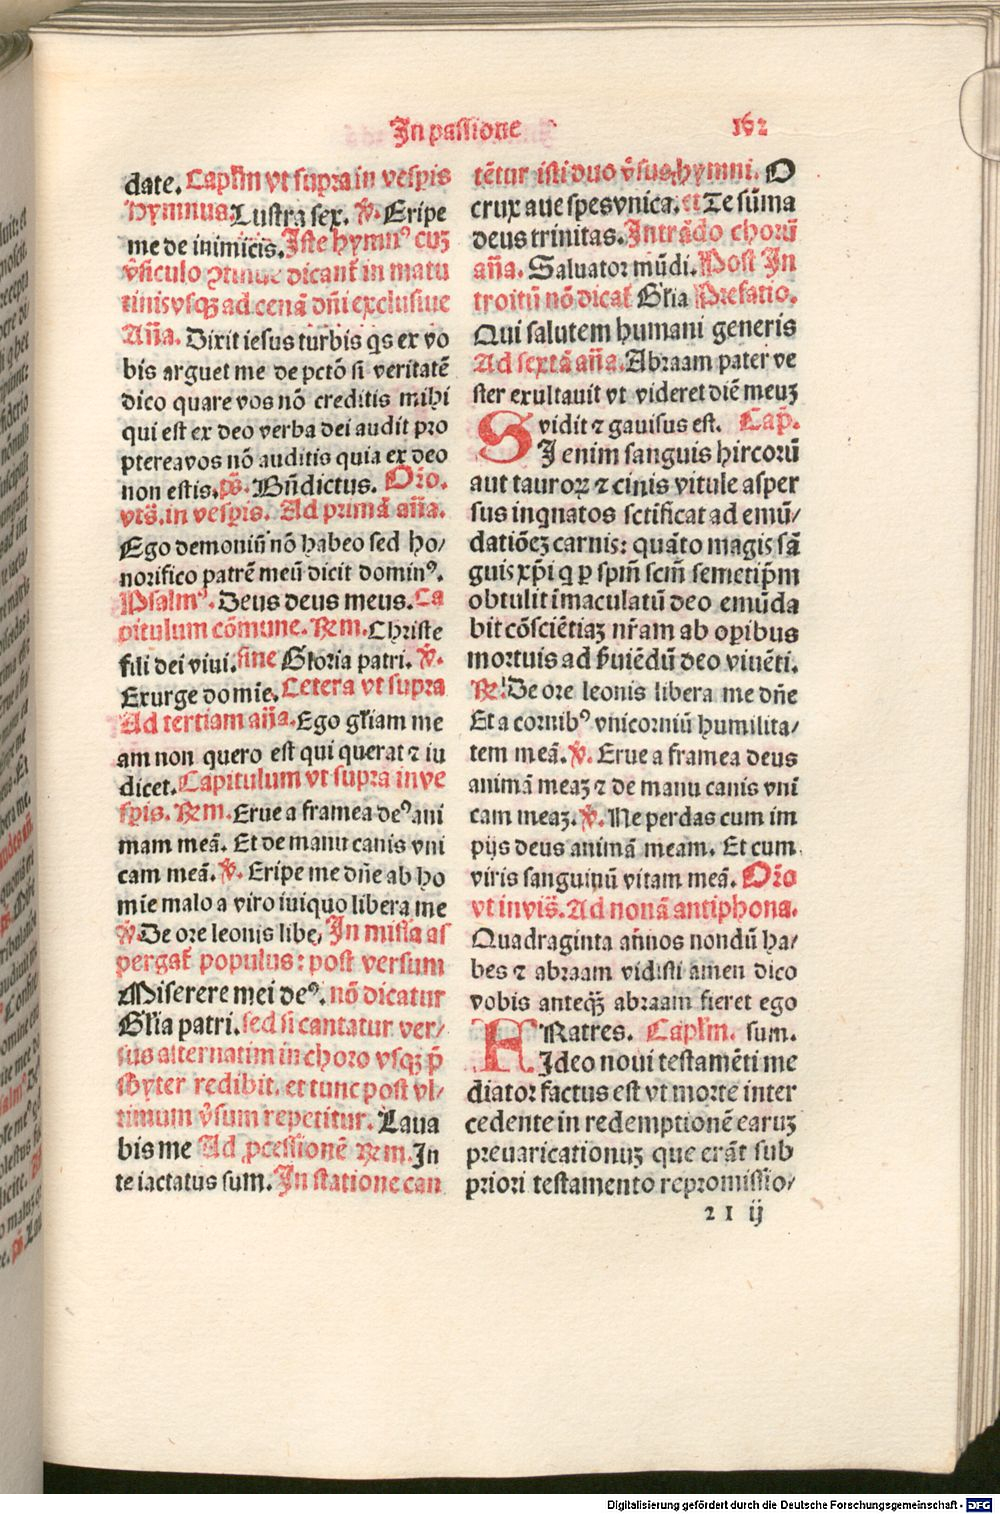 In passione 162
date. Capl'm vt supra in vespis
Hymnus. Lustra sex. ℣. Eripe
me de inimicis. Iste hymnꝰ cuꝫ
v̄siculo ꝯtinue dicant̄ in matu
tinis vsqꝫ ad cenā dn̄i exclusiue
An̄a. Dixit iesus turbis qs ex vo
bis arguet me de pctō si veritatē
dico quare vos nō creditis mihi
qui est ex deo verba dei audit pro
pterea vos nō auditis quia ex deo
non estis. ps̄. Bn̄dictus. Or̄o.
vts̄. in vesp̄is. Ad primā an̄a.
Ego demoniū nō habeo sed ho/
norifico patrē meū dicit dominꝰ.
Psalmꝰ. Deus deus meus. Ca
pitulum cōmune. Rm. Christe
fili dei viui. sine Gloria patri. ℣.
Exurge domie. Cetera vt supra
Ad tertiam an̄a. Ego gl'iam me
am non quero est qui querat ⁊ iu
dicet. Capitulum vt supra in ve
spis. Rm. Erue a framea deꝰ ani
mam meā. Et de manu canis vni
cam meā. ℣. Eripe me dn̄e ab ho
mie malo a viro iniquo libera me
℣. De ore leonis libe, In missa as
pergat̄ populus: post versum
Miserere mei deꝰ. nō dicatur
Gl'ia patri. sed si cantatur ver/
sus alternatim in choro vsqꝫ p̄
sbyter redibit. et tunc post vl/
timum v̄sum repetitur. Laua
bis me Ad ꝓcessionē Rm. In
te iactatus sum. In statione can
tētur isti duo v̄sus hymni. O
crux aue spes vnica. et Te sūma
deus trinitas. Intrādo chorū
an̄a. Saluator mūdi. Post In
troitū nō dicat̄ Gl'ia Prefatio.
Qui salutem humani generis
Ad sextā an̄a. Abraam pater ve
ster exultauit vt videret diē meuꝫ
vidit ⁊ gauisus est. Cap̄.
SI enim sanguis hircorū
aut tauroꝝ ⁊ cinis vitule asper
sus inqnatos sctificat ad emū/
datiōeꝫ carnis: quāto magis sā
guis xp̄i q ꝑ spm̄ scm̄ semetip̄m
obtulit īmaculatū deo emūda
bit cōsciētiaꝫ nr̄am ab oꝑibus
mortuis ad ẜuiēdū deo viuēti.
R. De ore leonis libera me dn̄e
Et a cornibꝰ vnicorniū humilita/
tem meā. ℣. Erue a framea deus
animā meaꝫ ⁊ de manu canis vni
cam meaꝫ. ℣. Ne perdas cum im
pijs deus animā meam. Et cum
viris sanguinū vitam meā. Or̄o
vt in vis̄. Ad nonā antiphona.
Quadraginta annos nondū ha/
bes ⁊ abraam vidisti amen dico
vobis anteqꝫ abraam fieret ego
FRatres. Capl'm. sum.
Ideo noui testamēti me
diator factus est vt morte inter
cedente in redemptionē earuꝫ
preuaricationuꝫ que erāt sub
priori testamento repromissio/
21 ij
Digitalisierung gefördert durch die Deutsche Forschungsgemeinschaft - DFG